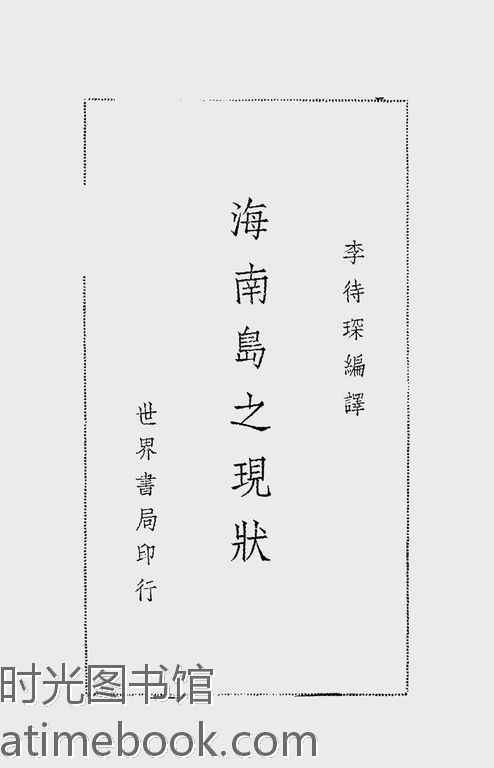 李待琛編譯
海南島之現狀
世界書局印行
时光图书馆
atimebook.com